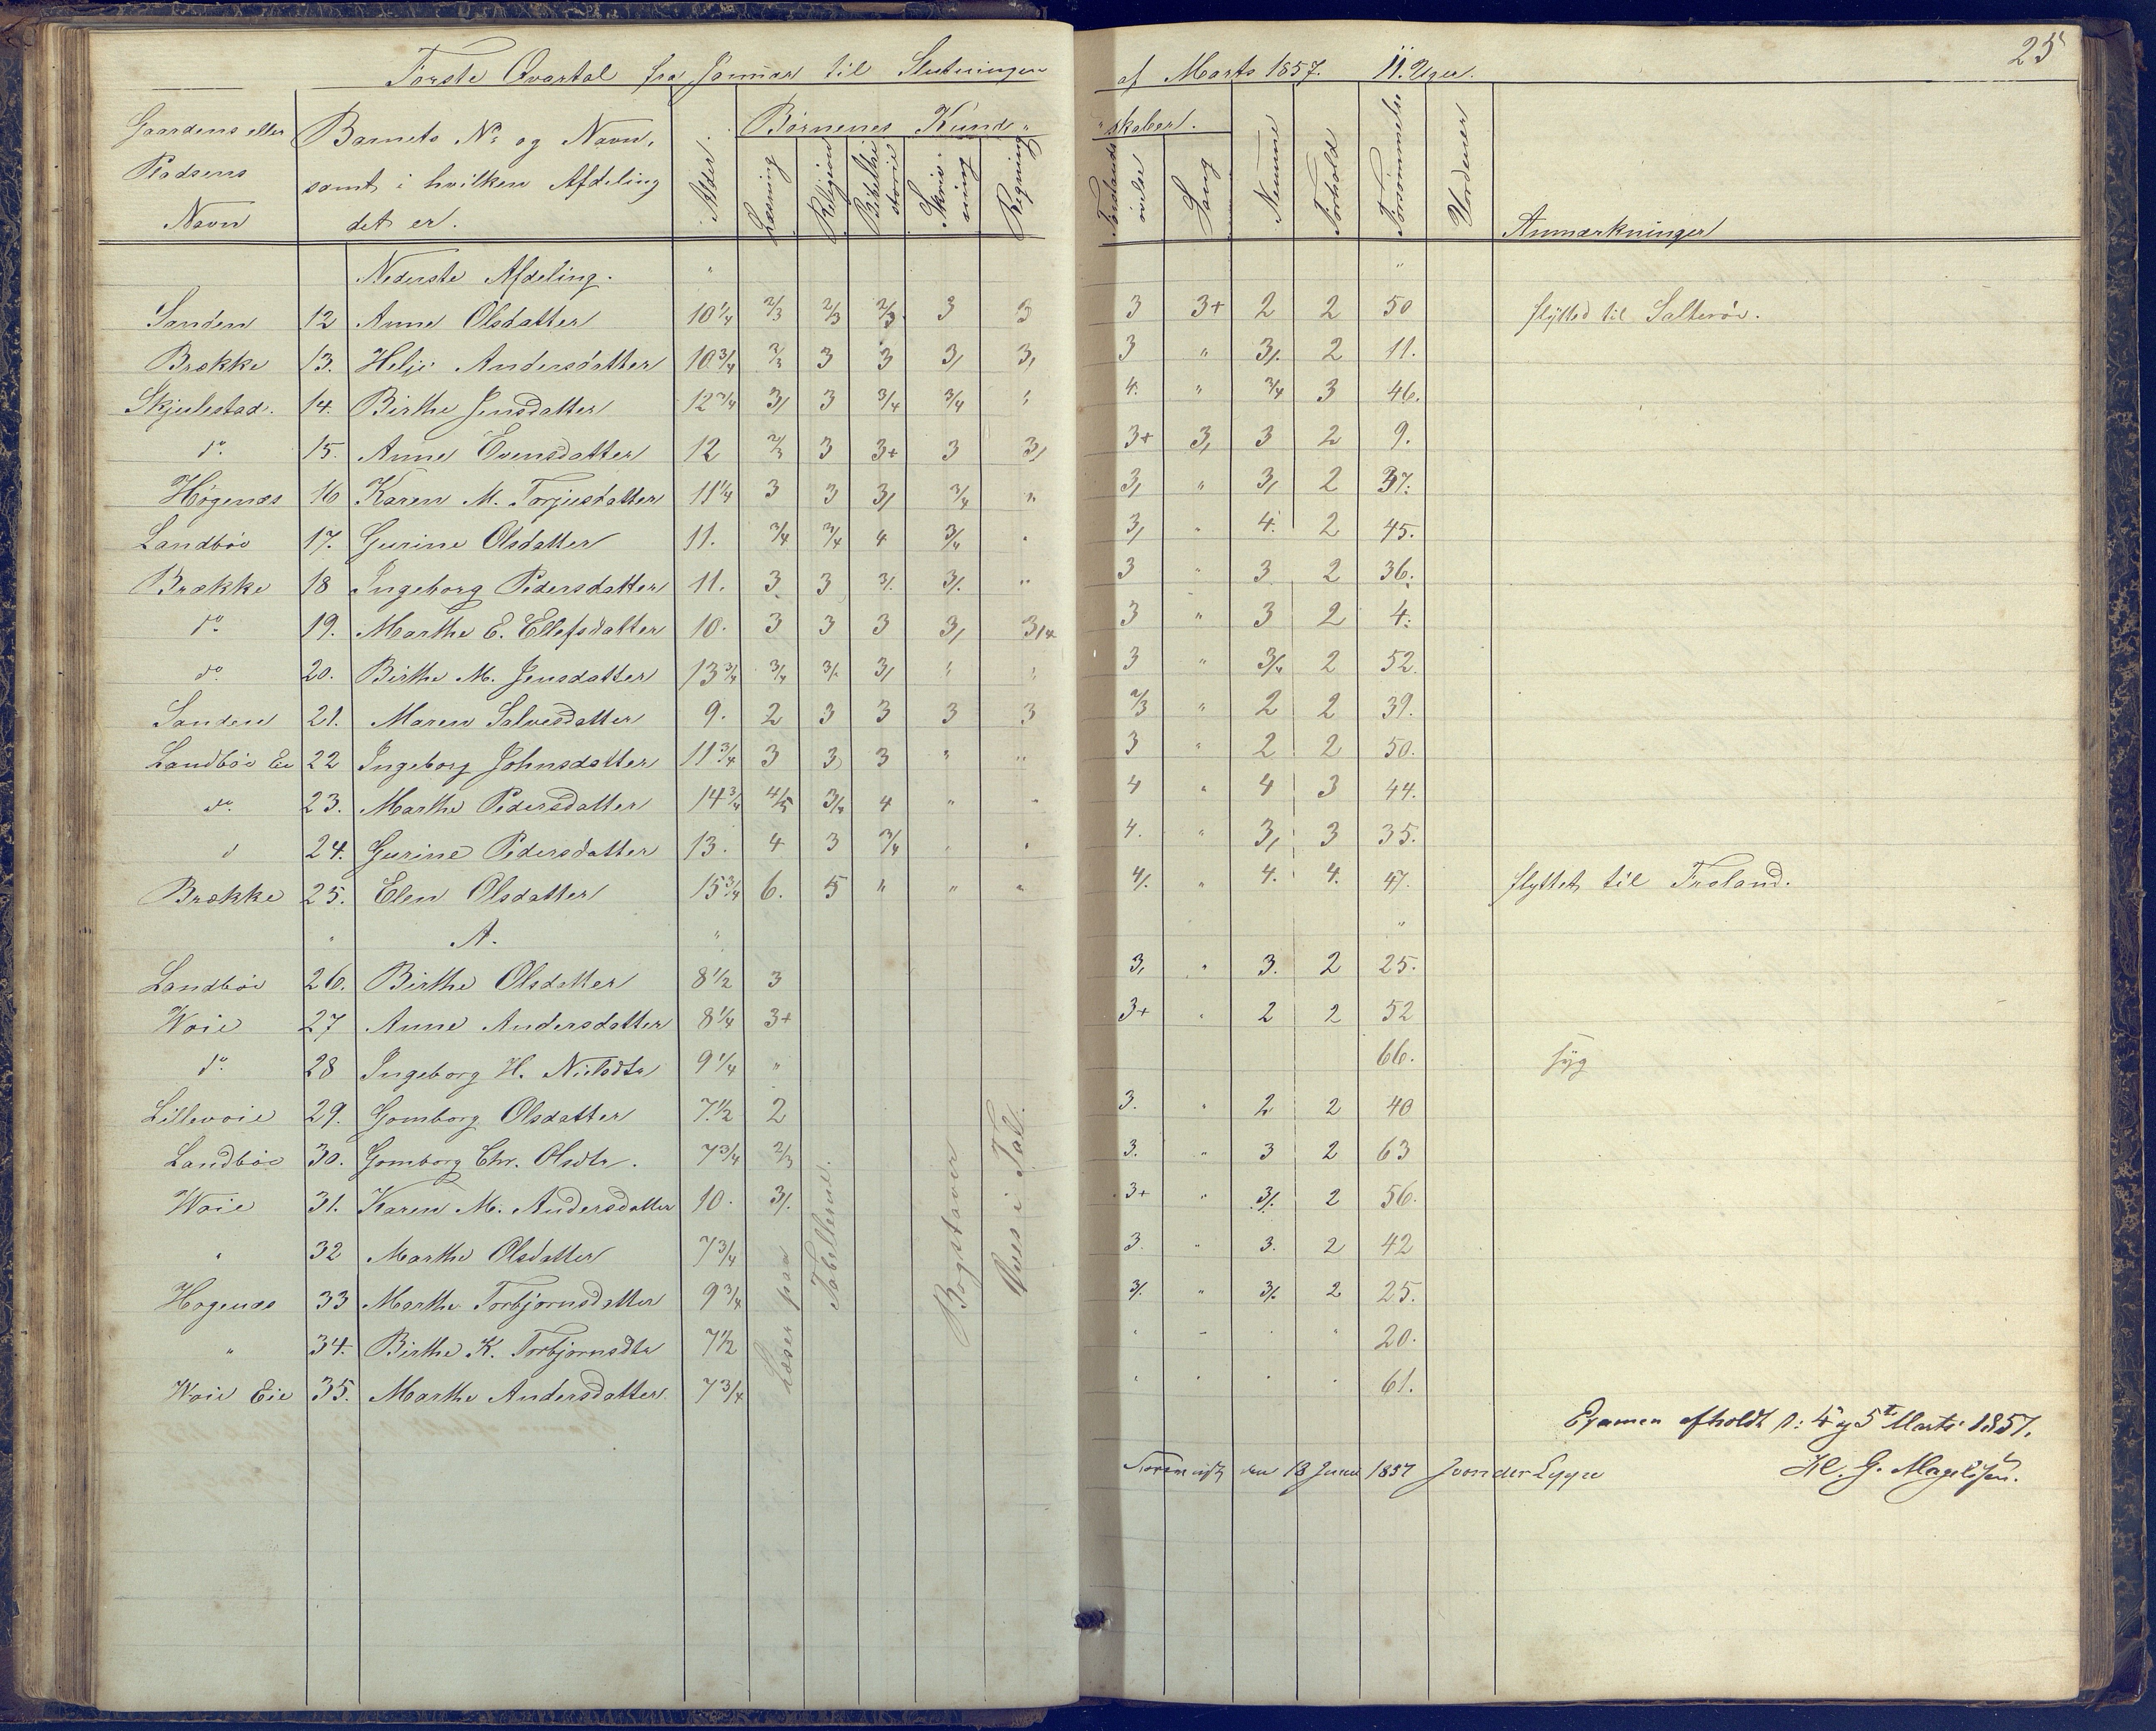 25
Første Qvartal fra Januar til Slutningen af Marts 1857. 11. Uger.
Gaardens eller Pladsens Navn | Barnets No og Navn, samt i hvilken Afdeling det er. | Alder. | Børnenes Kund- skaber. | Læsning | Religion | Bibelhistorie | Skrivning | Regning | Forstandsøvelse | Sang | Nemme | Forhold | Forsømmelse | Anmærkninger
Nederste Afdeling. "
Sanden 12 Anne Olsdatter 10 1/4 2/3 2/3 2/3 3 3 3 3+ 2 2 50 flytted til Salterøe.
Brække 13. Helje Andersdatter 10 3/4 2/3 3 3 3/ 3/ 3 " 3/. 2 11.
Skjulestad. 14. Birthe Jensdatter 12 3/4 3/ 3 3/4 3/4 " 4. " 3/4 3 46.
do. 15. Anne Evensdatter 12 2/3 3 3+ 3 3/ 3+ 3/ 3 2 9.
Høgenæs 16 Karen M. Torjusdatter 11 1/4 3 3 3/ 3/4 " 3/ " 3/ 2 37.
Landbøe 17. Gurine Olsdatter 11. 3/4 3/4 4 3/4 " 3/ " 4. 2 45.
Brække 18 Ingeborg Pedersdatter 11. 3 3 3/. 3/. " 3 " 3 2 36.
do. 19. Marthe E. Ellefsdatter 10. 3 3 3 3/ 3/4 3 " 3 2 4.
do. 20. Birthe M. Jensdatter 13 3/4 3/4 3/. 3/ " " 3 " 3/4 2 52.
Sanden 21. Maren Salvesdatter 9. 2 3 3 3 3 2/3 " 2 2 39.
Landbøe Eie 22 Ingeborg Johnsdatter 11 3/4 3 3 3 " " 3 " 2 2 50.
do. 23. Marthe Pedersdatter 14 3/4 4/5 3/4 4 " " 4 " 4 3 44.
d 24. Gurine Pedersdatter 13. 4 3 3/4 " " 4. " 3/ 3 35.
Brække 25. Elen Olsdatter 15 3/4 6. 5 " " " 4/. " 4. 4. 47. flyttet til Froland.
" A. " "
Landbøe 26. Birthe Olsdatter 8 1/2 3 3/ " 3. 2 25.
Woie 27 Anne Andersdatter 8 1/4 3+ 3+ " 2 2 52
do. 28 Ingeborg H. Nielsdtr 9 1/4 " 66. syg
Lillevoie 29. Gomborg Olsdatter 7 1/2 2 3. " 2 2 40
Landbøe 30. Gomborg Chr. Olsdtr. 7 3/4 2/3 3. " 3 2 63
Woie 31. Karen M. Andersdatter 10. 3/. 3+ " 3/. 2 56.
" 32 Marthe Olsdatter 7 3/4 3. " 3. 2 42
Høgenæs 33 Marthe Torbjørnsdatter 9 3/4 3/. " 3/. 2 25.
" 34. Birthe K. Torbjørnsdtr 7 1/2 " " " " 20.
Woie Eie 35. Marthe Andersdatter 7 3/4 " " " " 61.
Læser paa Tabellerne.
Bogstaver
Øves i Tal.
Examen afholdt d: 4 og 5te Marts 1857.
den 18 Juni 1857 J von der Lippe
H. G. Magelssen.